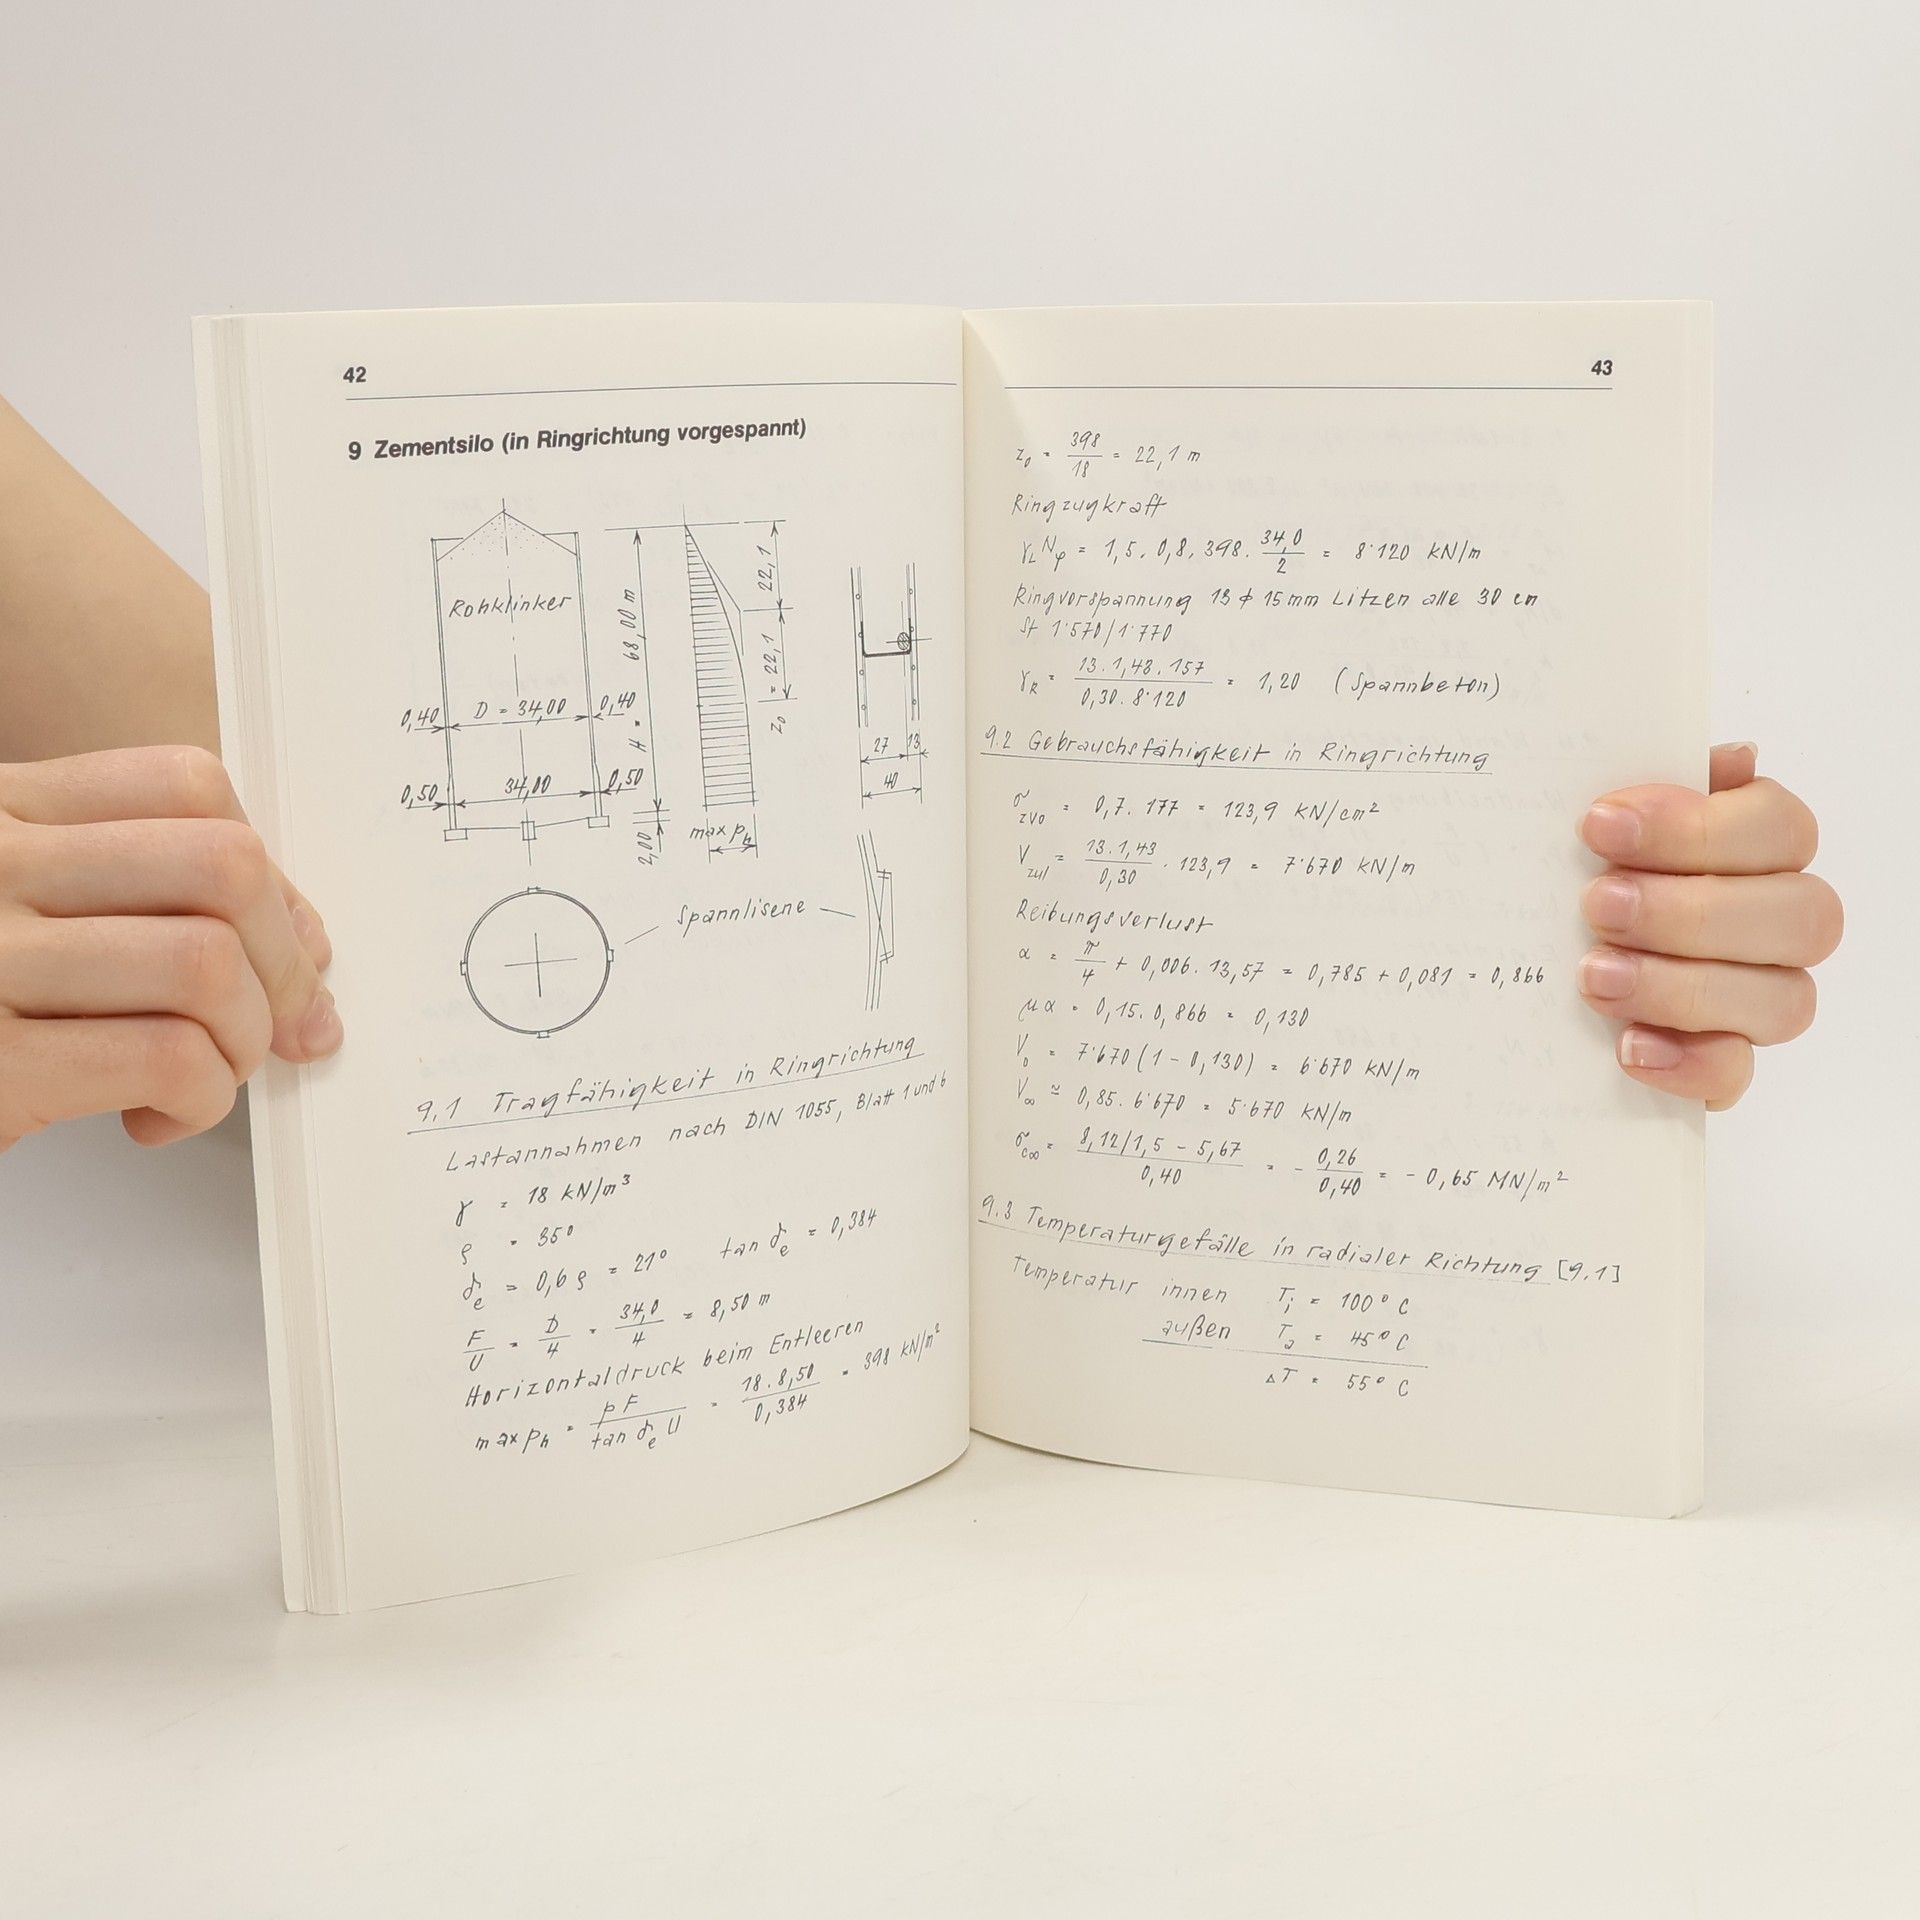 42
9 Zementsilo (in Ringrichtung vorgespannt)
Rohklinker
0,40 D = 34,00 0,40
0,50 34,00 0,50
H = 68,00 m
2,00
22,1
z₀ = 22,1
max pₕ
27 13
40
Spannlisene
9.1 Tragfähigkeit in Ringrichtung
Lastannahmen nach DIN 1055, Blatt 1 und 6
γ = 18 kN/m³
ϱ = 35°
δₑ = 0,6 ϱ = 21° tan δₑ = 0,384
F/U = D/4 = 34,0/4 = 8,50 m
Horizontaldruck beim Entleeren
max pₕ = p F / tan δₑ U = 18 . 8,50 / 0,384 = 398 kN/m²
43
z₀ = 398/18 = 22,1 m
Ringzugkraft
γL Nφ = 1,5 . 0,8 . 398 . 34,0/2 = 8'120 kN/m
Ringvorspannung 13 ϕ 15 mm Litzen alle 30 cm
St 1'570/1'770
γR = 13 . 1,43 . 157 / 0,30 . 8'120 = 1,20 (Spannbeton)
9.2 Gebrauchsfähigkeit in Ringrichtung
σzv0 = 0,7 . 177 = 123,9 kN/cm²
Vzul = 13 . 1,43 / 0,30 . 123,9 = 7'670 kN/m
Reibungsverlust
α = π/4 + 0,006 . 13,57 = 0,785 + 0,081 = 0,866
μα = 0,15 . 0,866 = 0,130
V₀ = 7'670 (1 - 0,130) = 6'670 kN/m
V∞ ≃ 0,85 . 6'670 = 5'670 kN/m
σc∞ = 8,12/1,5 - 5,67 / 0,40 = - 0,26/0,40 = - 0,65 MN/m²
9.3 Temperaturgefälle in radialer Richtung [9.1]
Temperatur innen Tᵢ = 100° C
außen Tₐ = 45° C
ΔT = 55° C